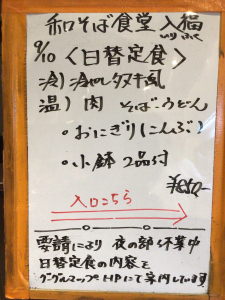 和そば食堂 入福
9/10 〈日替定食〉
冷)冷やしタヌキ風
温) 肉 そば・うどん
・おにぎり(こんぶ)
・小鉢 2品付
入口こちら
要請により 夜の部 休業中
日替定食の内容を
グーグルマップとHPにて案内しています